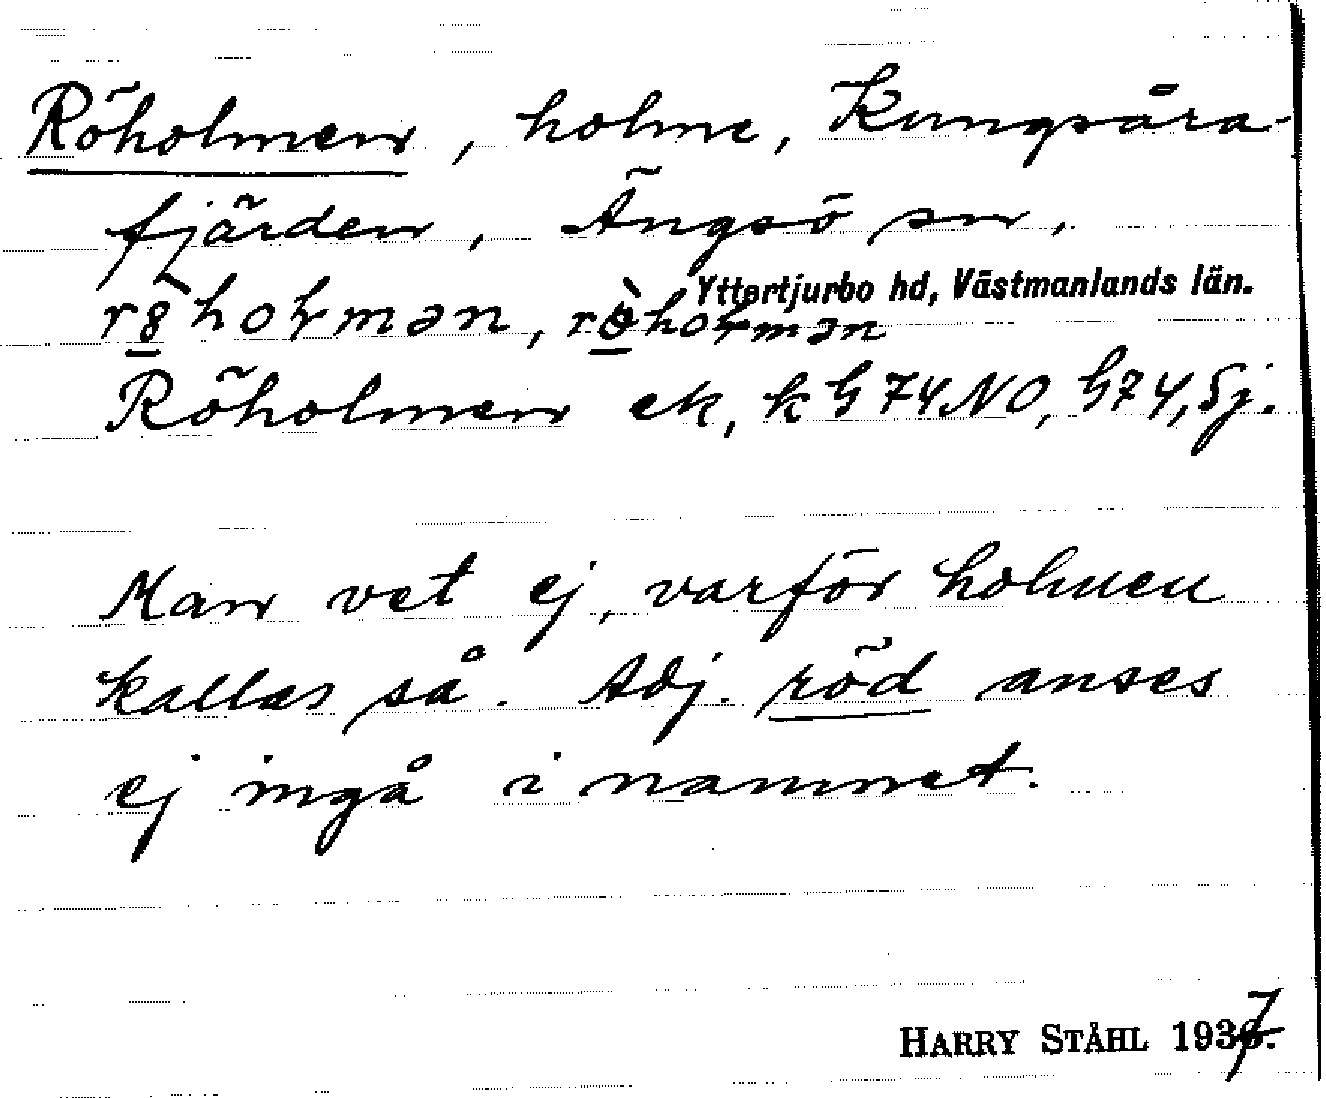 Röholmen, holme, Kungsåra-
fjärden, Ängsö sn,
Yttertjurbo hd, Västmanlands län.
Röholmen ek, k G 74 NO, G 74, Sj.
Man vet ej, varför holmen
kallas så. Adj. röd anses
ej ingå i namnet.
HARRY STÅHL 1937.